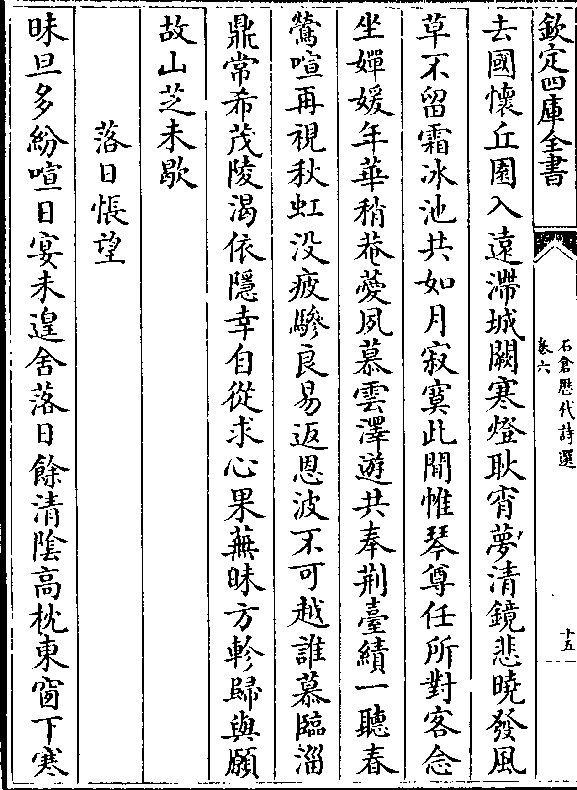 欽定四庫全書
石倉歴代詩選
卷六
十五
去國懷丘園入遠滯城闕寒燈耿宵夢清鏡悲曉發風
草不留霜冰池共如月寂寞此間帷琴尊任所對客念
坐嬋媛年華稍菴薆夙慕雲澤遊共奉荆臺績一聽春
鶯喧再視秋虹没疲驂良易返恩波不可越誰慕臨淄
鼎常希茂陵渴依隱幸自從求心果蕪昧方軫歸與願
故山芝未歇
落日悵望
昧旦多紛喧日宴未遑舍落日餘清陰高枕東窗下寒